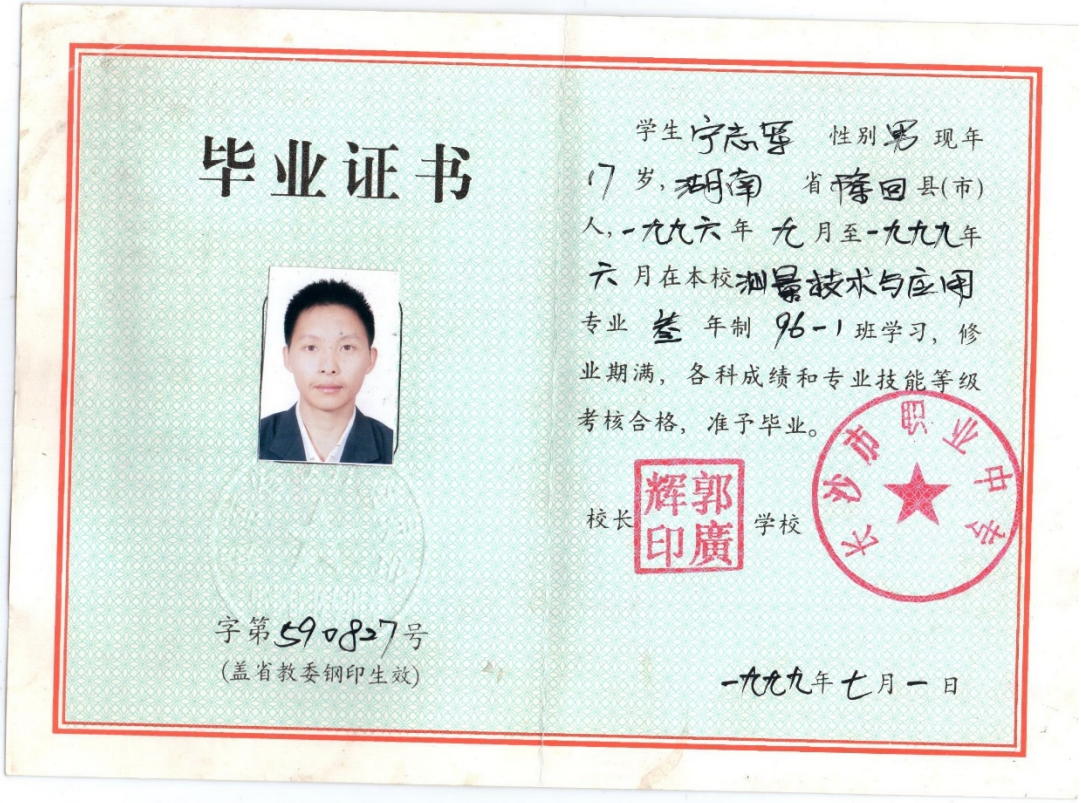 毕业证书
字第590827号
(盖省教委钢印生效)
学生宁志军 性别男 现年
17岁,湖南 省隆回县(市)
人,一九九六年 九月至一九九九年
六月在本校测量技术与应用
专业 叁 年制 96-1 班学习, 修
业期满, 各科成绩和专业技能等级
考核合格, 准予毕业。
校长 郭廣辉印 学校
长沙市铝业中专
一九九九年七月一日